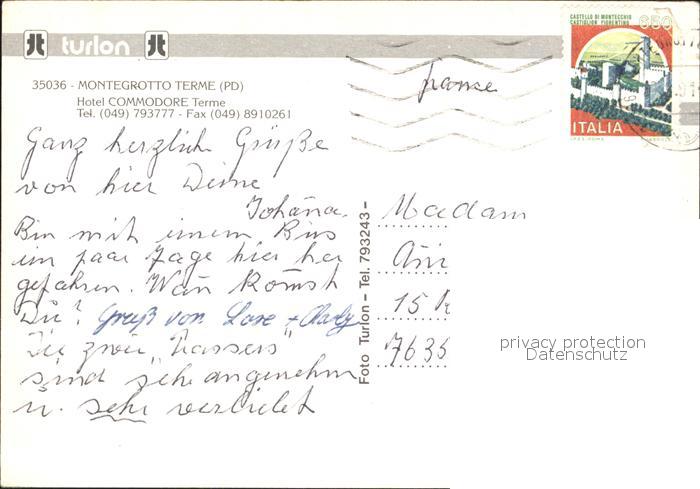 turlon
CASTELLO DI MONTECCHIO
CASTIGLION FIORENTINO
650
ITALIA
35036 - MONTEGROTTO TERME (PD)
Hotel COMMODORE Terme
Tel. (049) 793777 - Fax (049) 8910261
Ganz herzliche Grüße
von hier Deine
Johana.
Bin mit einem Bus
ein paar Tage hier her
gefahren. Wan komst
Du? Gruß von Lore +
Die zwei "Rassers"
sind sehr angenehm
u. sehr verliebt
Foto Turlon – Tel. 793243 –
france
Madam
15
privacy protection
Datenschutz